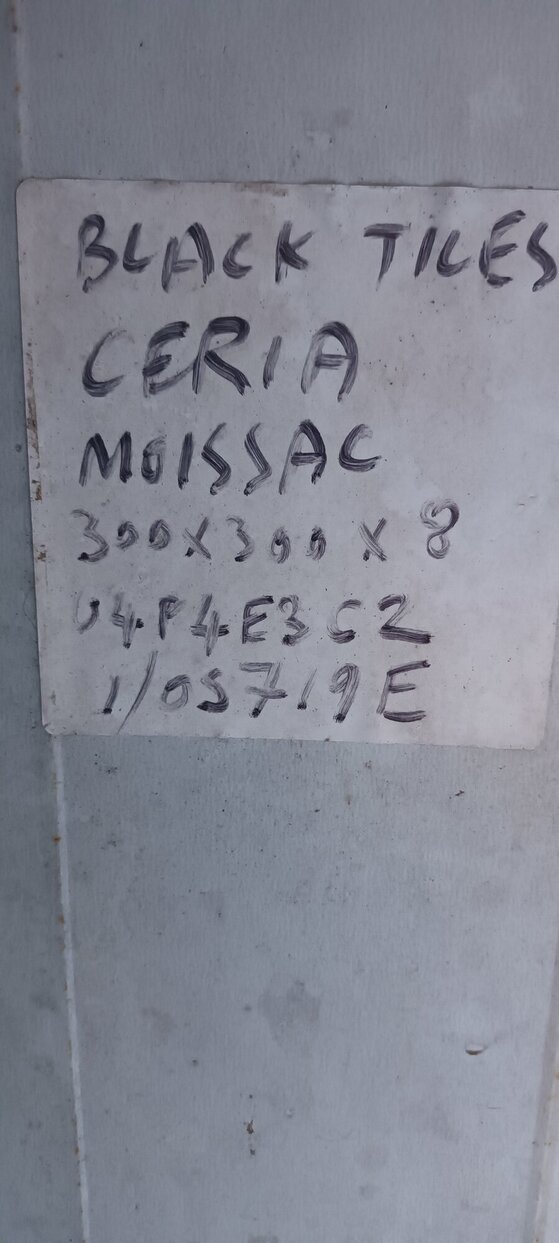 BLACK TILES
CERIA
MOISSAC
300X300 X 8
U4P4E3C2
1/05719E